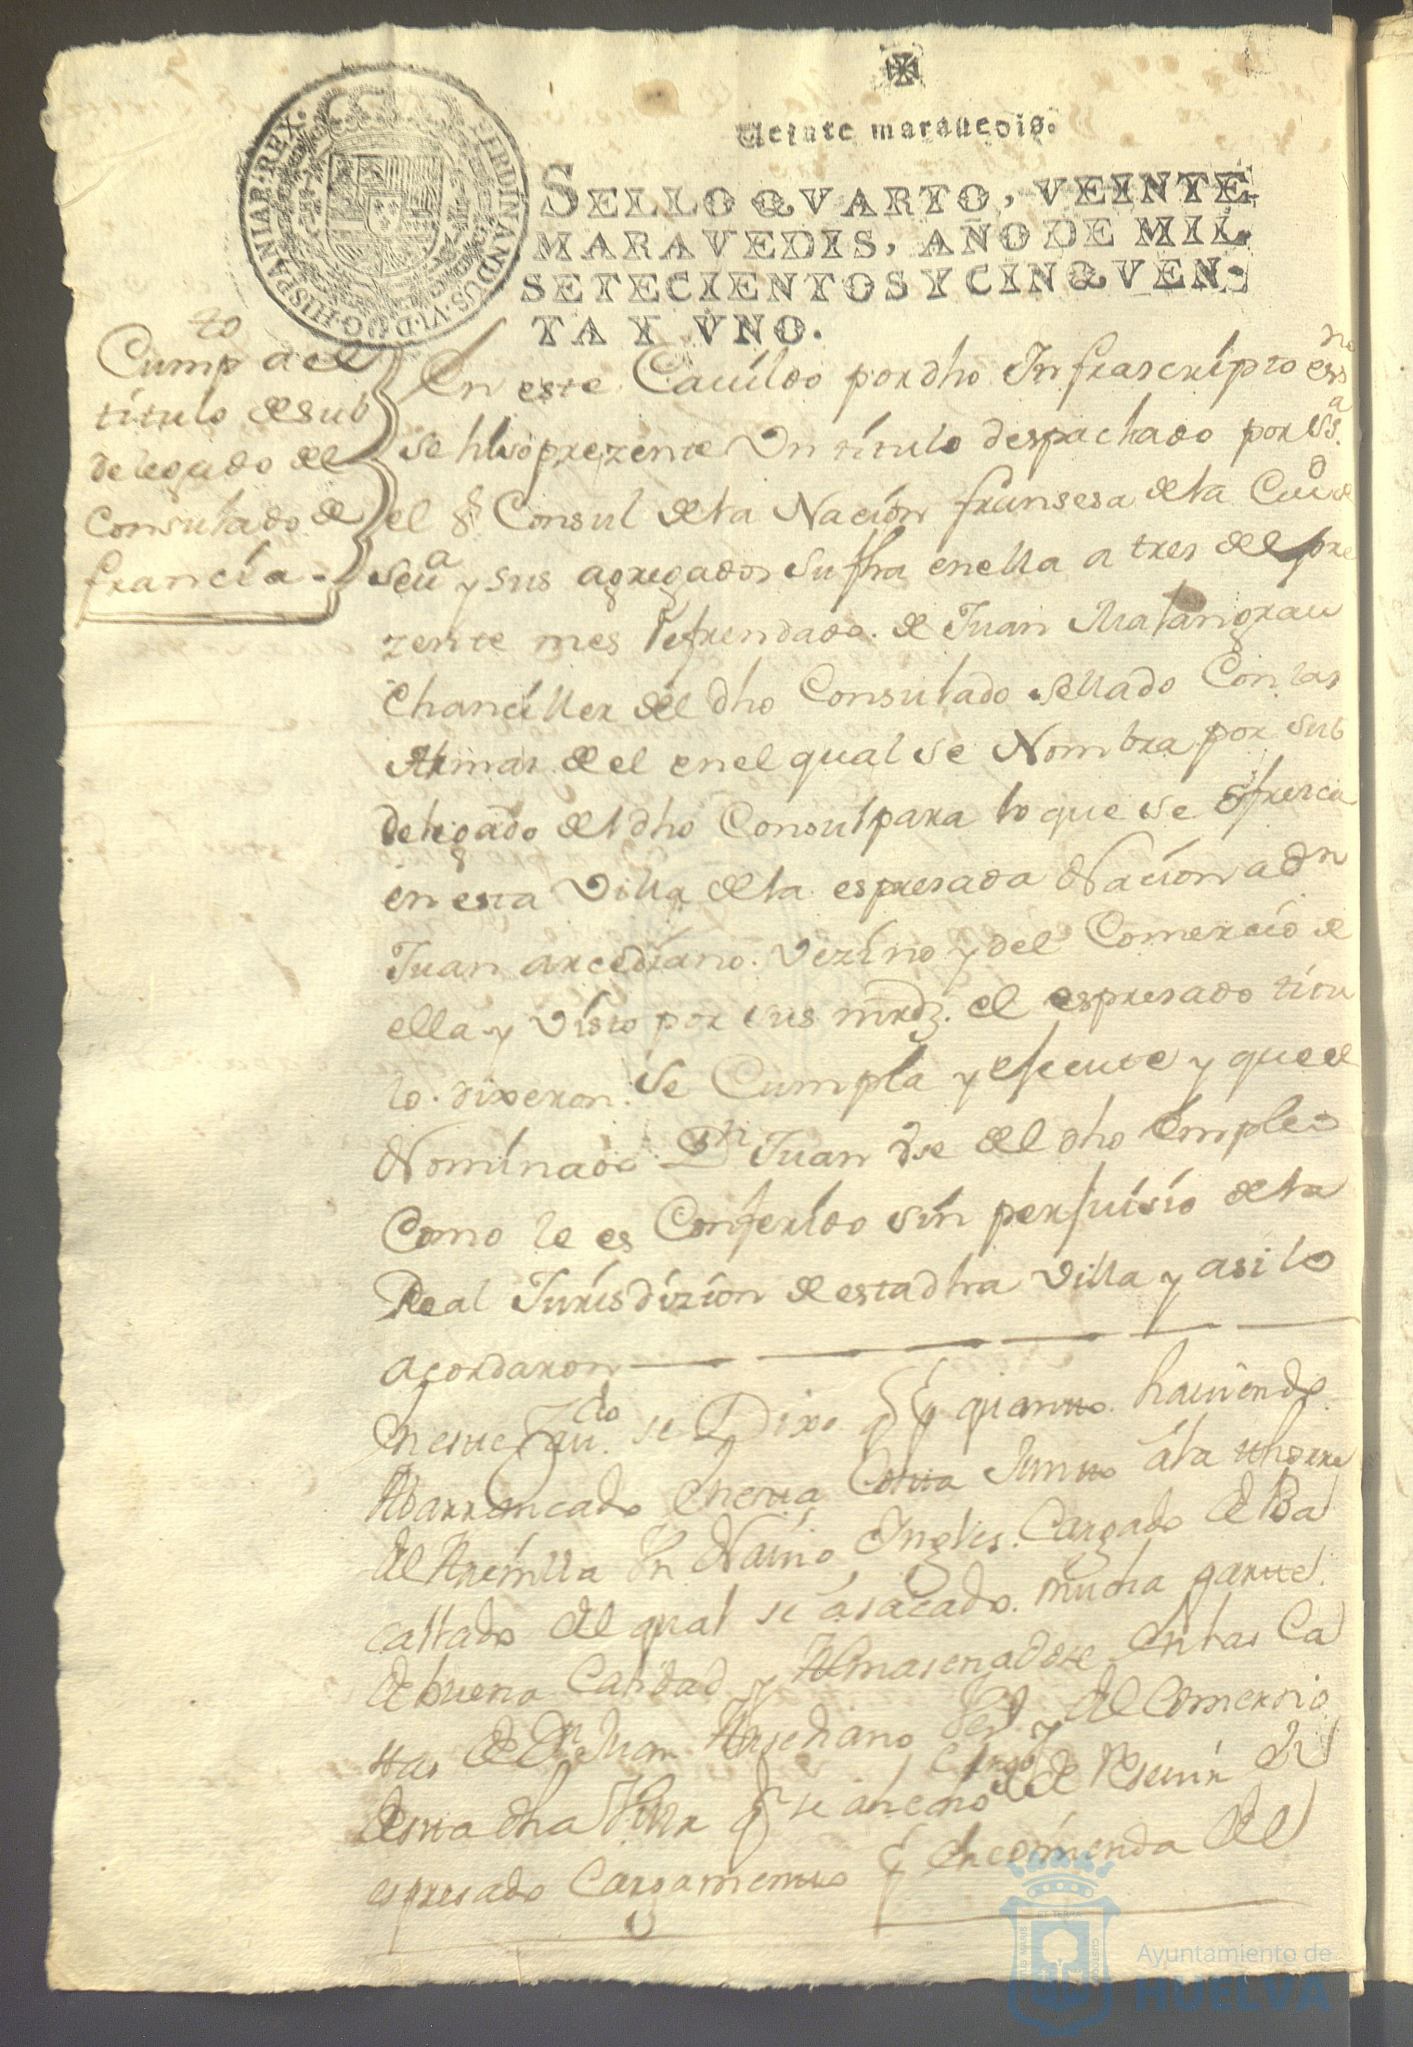 Veinte marauedis.
SELLO QVARTO, VEINTE
MARAVEDIS, AÑO DE MIL
SETECIENTOS Y CINQVEN-
TA Y VNO.
FERDINANDUS·VI·D·G·HISPANIAR·REX·
Cump.to del
título de sub
delegado del
Consulado de
francia.
En este Cauildo por dho Infrascripto essno
se hiso prezente Un título despachado por
el Sr Consul de la Nacion fransesa de la Ciud de
Seua y sus agregados su fha en ella a tres del pre
zente mes Refrendado. de Juan Malangrau
Chanciller del dho Consulado Sellado Con las
Armas de el en el qual se Nombra por sub
delegado del dho Consul para lo que se ofresca
en esta Villa de la espresada Nacion a Dn
Juan arcediano. Vezino y del Comercio de
ella y Visto por sus mrdz. el espresado titu
lo. dixeron. se Cumpla y efecute y que el
Nominado Dn Juan Vse del dho Empleo
Como le es Conferido sin perfuisio de la
Real Jurisdizion de esta dha Villa y asi lo
acordaron
En este se Dixo q quanto hauiendo
Abarrancado en esta Costa Junto á la
del Arenilla Un Nauio Ingles. Cargado de Ba
callado del qual se á sacado. mucha parte
de buena Calidad y Almasenadose en las Ca
sas de Dn Juan Arsediano Vesº y del Comersio
de esta dha Villa q se á hecho cargo de Reseuir el
espresado Cargamento y Encomienda del
Ayuntamiento de
HUELVA